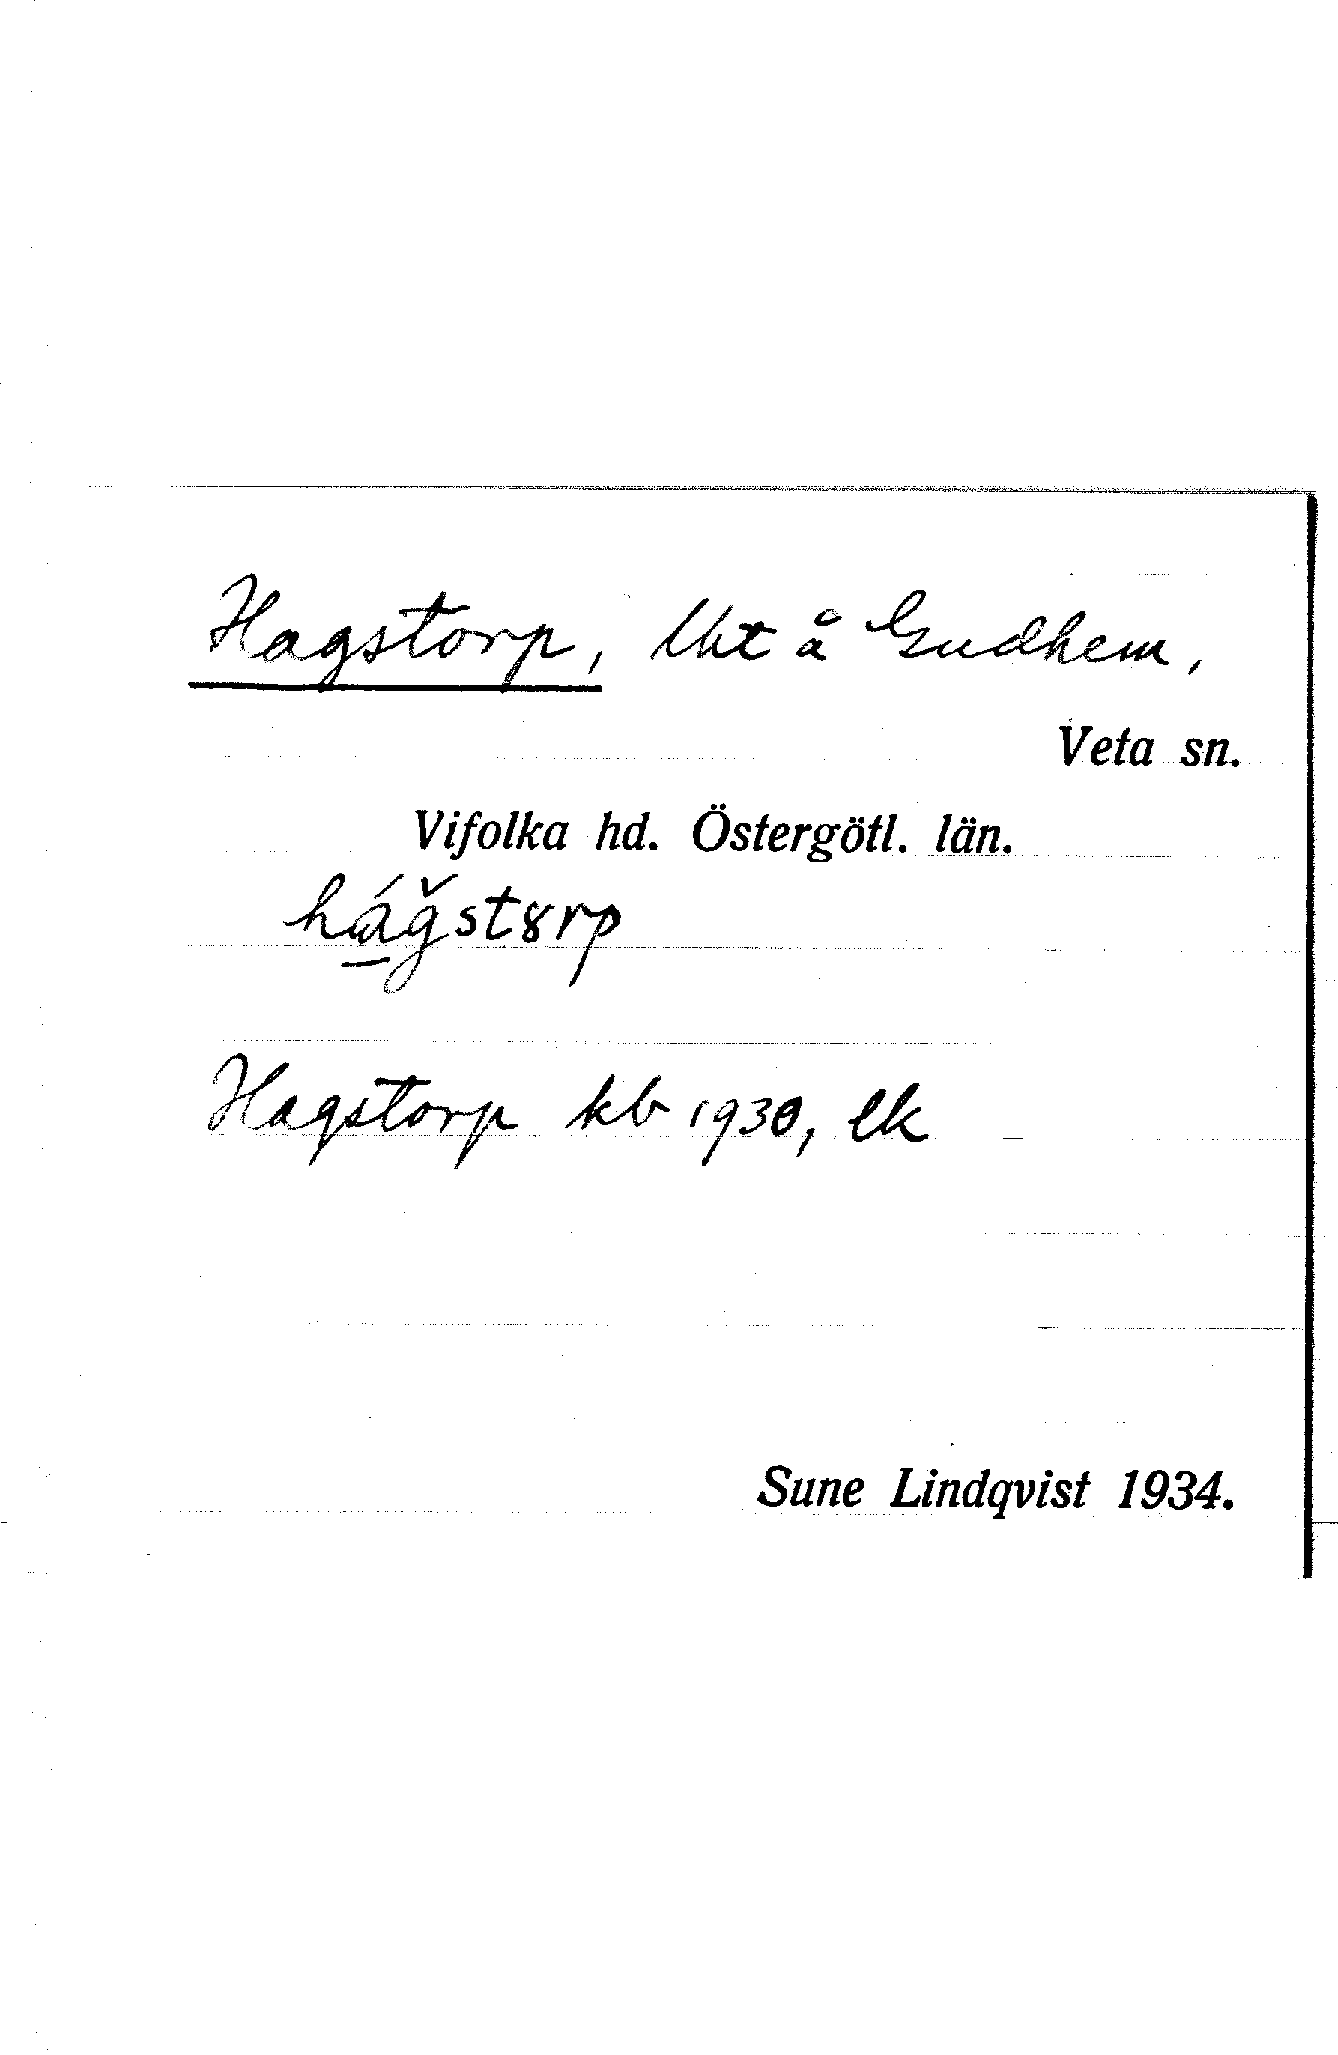 Hagstorp, lht å Gudhem,
Veta sn.
Vifolka hd. Östergötl. län.
Hagstorp kb 1930, lk
Sune Lindqvist 1934.